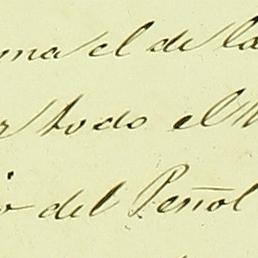 ma el de la
todo el
del Peñol